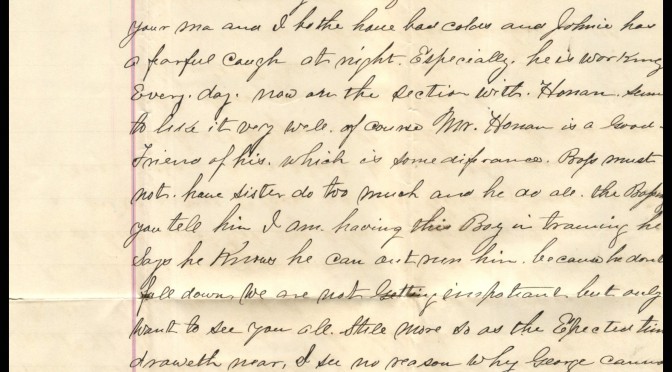 your ma and I bothe have bad colds and Johnie has
a farful cough at night. Especially. he is working
Every. day. now on the section with. Honan. seems
to like it very well. of course Mr. Honan is a Good-
Friend of his. which is some diferance. Bops must
not. have sister do too much and he do all. the
you tell him I am. having this Boy in training he
Says he Knows he can out run him. because he dont
fall down. We are not Getting inspatiant but only
want to see you all. Still more so as the Expected time
draweth near, I see no reason why George